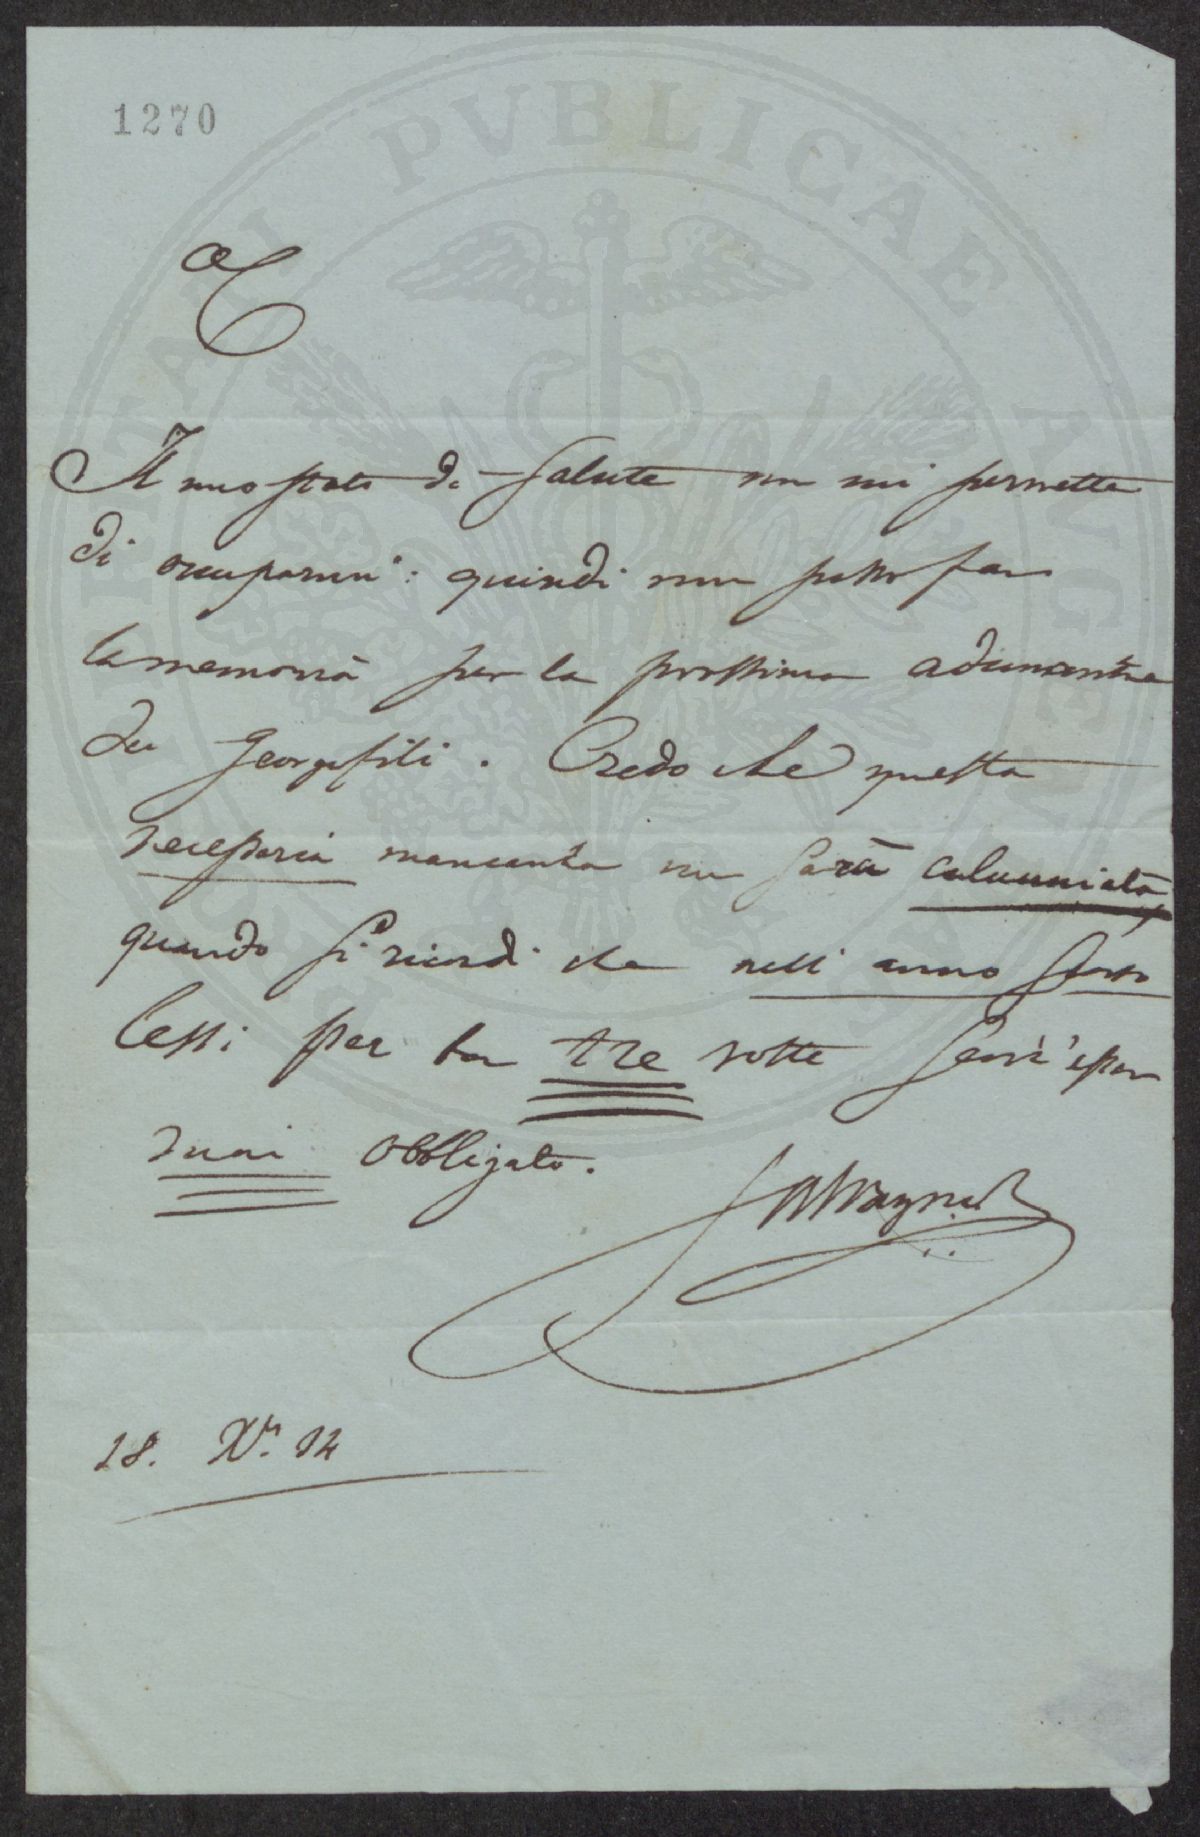 1270
C
Il mio stato di salute non mi permette
di occuparmi: quindi non posso fare
la memoria per la prossima adunanza
dei Georgofili. Credo che questa
necessaria mancanza non sarà calunniata
quando si ricordi che nell'anno scorso
lessi per ben tre volte senz'esser
mai obbligato.
18. Xbre
PROSPERITATI PVBLICAE AVGENDAE